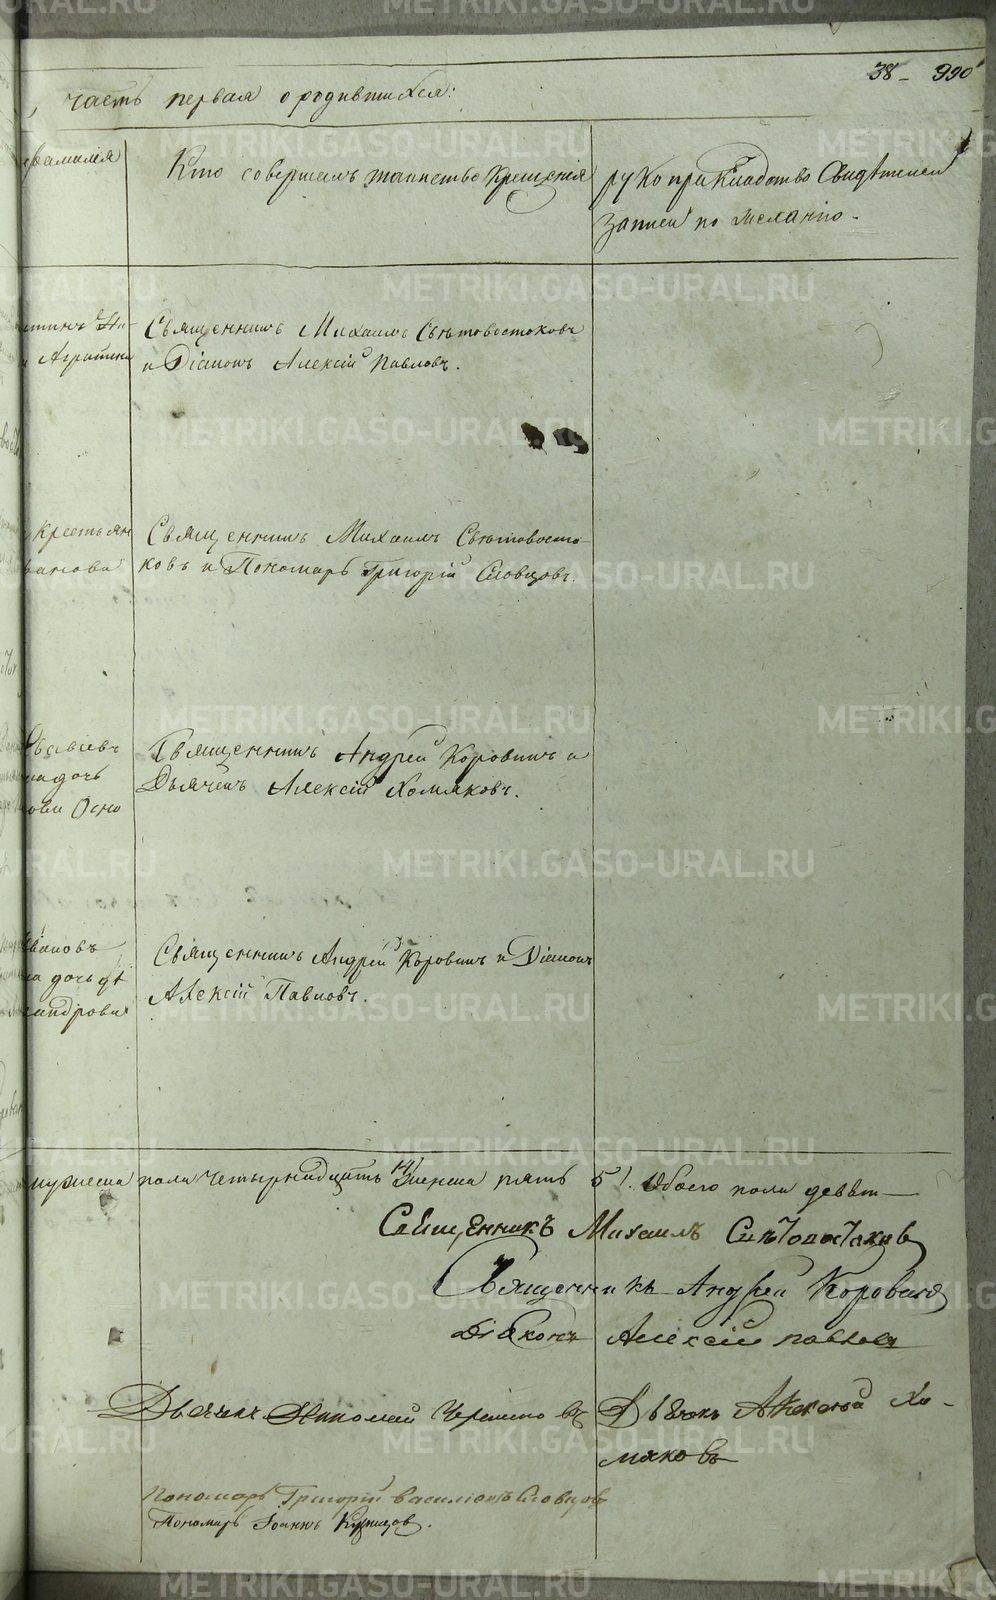 38 - 990
часть первая о родившихся:
фамилія
Кто совершалъ таинство Крещенія
рукоприкладство Свидѣтелей
записи по желанію.
Священникъ Михаилъ Свѣтовостоковъ
и Діаконъ Алексій Павловъ.
и Агрипина
крестьян
Священникъ Михаилъ Свѣтовосто-
ковъ и Пономарь Григорій Словцовъ.
Священникъ Андрей Коровинъ и
Дьячекъ Алексій Хомяковъ.
на дочь
Осно
Ивановъ
Священникъ Андрей Коровинъ и Діаконъ
на дочь дѣ
Алексій Павловъ.
сандрова
мужеска пола четырнадцать 14 женска пять 5. Обоего пола девят—
Священникъ Михаилъ Свѣтовостоковъ
Священникъ Андрей Коровинъ
Діаконъ Алексій Павловъ
Дьячекъ Николай
Дьячокъ Алексей Хо-
мяковъ
Пономарь Григорій Васильевъ Словцовъ
Пономарь Іоаннъ Кузнецов.
METRIKI.GASO-URAL.RU